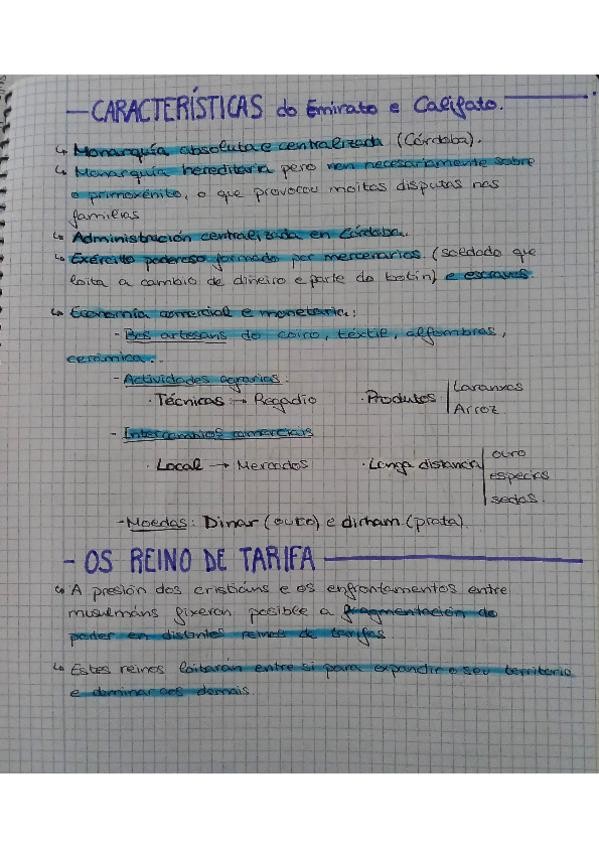 - CARACTERÍSTICAS do Emirato e Califato.
↳ Monarquía absoluta e centralizada (Córdoba).
↳ Monarquía hereditaria pero non necesariamente sobre
o primoxénito, o que provocou moitas disputas nas
familias
↳ Administración centralizada en Córdoba.
↳ Exército poderoso formado por mercenarios (soldado que
loita a cambio de diñeiro e parte do botín) e escravos
↳ Economía comercial e monetaria:
- Bos artesans do coiro, téxtil, alfombras,
cerámica...
- Actividades agrarias:
· Técnicas → Regadío · Produtos Laranxas
Arroz
- Intercambios comerciais
· Local → Mercados · Longa distancia ouro
especias
sedas.
- Moedas: Dinar (ouro) e dirham (prata).
- OS REINO DE TARIFA
↳ A presión dos cristiáns e os enfrontamentos entre
musulmáns fixeron posible a fragmentación do
poder en distintos reinos de tarifas
↳ Estes reinos loitarán entre si para expandir o seu territorio
e dominar aos demais.